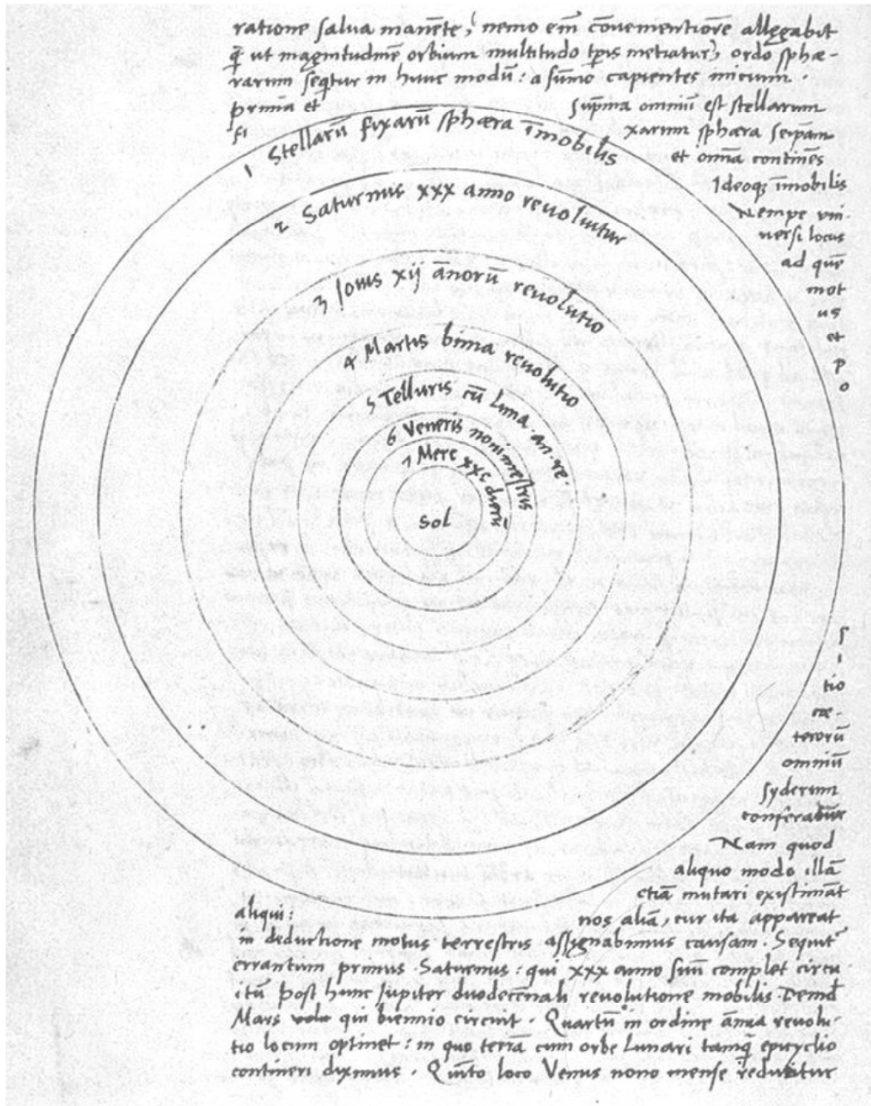 ratione salua manēte, nemo em̄ cōuenientiorē allegabit
q̄ ut magnitudinē orbium multitudo tp̄is metiatur, ordo sphæ-
rarum seq̄tur in hunc modū: a sūmo capientes initium.
prima et suprema omniū est stellarum
fi xarum sphæra seip̄am
et omīa continēs
Ideoqȝ īmobilis
Nempe vni-
uersi locus
ad quē
mot
us
et
p
o
1 Stellarū fixarū sphæra īmobilis
2 Saturnus xxx anno reuoluitur
3 Iouis xij an̄orū reuolutio
4 Martis bima reuolutio
5 Telluris cū Luna an. re.
6 Veneris nonimestris
7 Merc xxc dierū
Sol
s
i
tio
cæ-
terorū
omniū
syderum
conferatur
Nam quod
aliquo modo illā
etiā mutari existimāt
aliqui: nos aliā, cur ita appareat
in deductione motus terrestris assignabimus causam. Sequit᷑
errantium primus Saturnus: qui xxx anno suū complet circu-
itū post hunc Jupiter duodecēnali reuolutione mobilis. Deinde
Mars qui biennio circuit. Quartū in ordine annua reuolu-
tio locum optinet: in quo terrā cum orbe Lunari tamq̄ epicyclio
contineri diximus. Quinto loco Venus nono mense reducitur